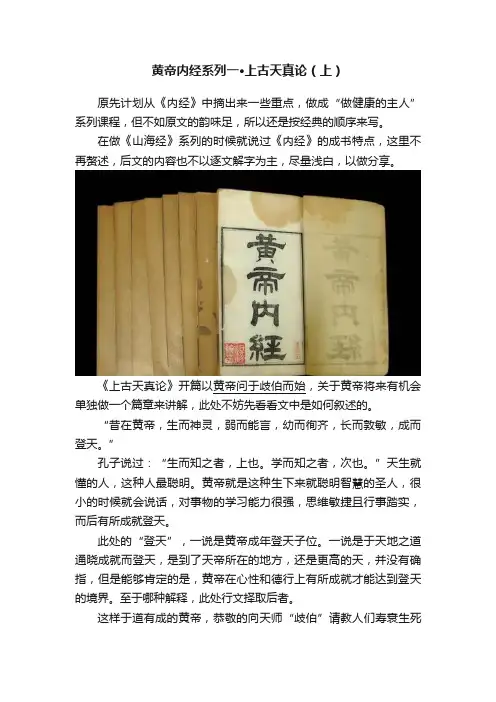 黄帝内经系列一•上古天真论（上）
原先计划从《内经》中摘出来一些重点，做成“做健康的主人”
系列课程，但不如原文的韵味足，所以还是按经典的顺序来写。
在做《山海经》系列的时候就说过《内经》的成书特点，这里不
再赘述，后文的内容也不以逐文解字为主，尽量浅白，以做分享。
黄帝内经
《上古天真论》开篇以黄帝问于歧伯而始，关于黄帝将来有机会
单独做一个篇章来讲解，此处不妨先看看文中是如何叙述的。
“昔在黄帝，生而神灵，弱而能言，幼而徇齐，长而敦敏，成而
登天。”
孔子说过：“生而知之者，上也。学而知之者，次也。”天生就
懂的人，这种人最聪明。黄帝就是这种生下来就聪明智慧的圣人，很
小的时候就会说话，对事物的学习能力很强，思维敏捷且行事踏实，
而后有所成就登天。
此处的“登天”，一说是黄帝成年登天子位。一说是于天地之道
通晓成就而登天，是到了天帝所在的地方，还是更高的天，并没有确
指，但是能够肯定的是，黄帝在心性和德行上有所成就才能达到登天
的境界。至于哪种解释，此处行文择取后者。
这样于道有成的黄帝，恭敬的向天师“歧伯”请教人们寿衰生死